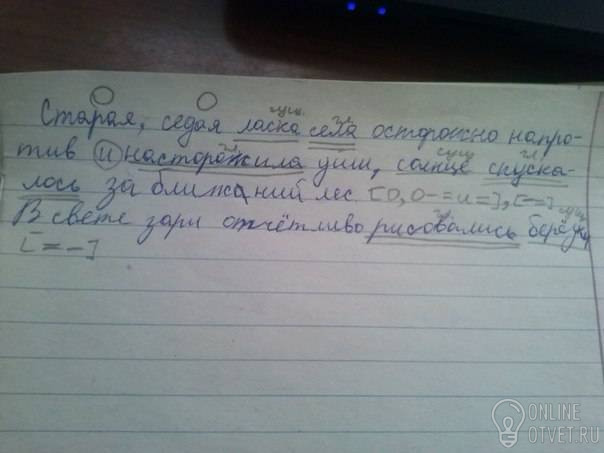 сущ. гл.
Старая, седая ласка села осторожно напро-
гл. сущ. гл.
тив и насторожила уши, солнце спуска-
лось за ближайний лес [О, О-=и=], [-=]
гл. сущ.
В свете зари отчётливо рисовались берёзки
[=-]
ONLINE
OTVET.RU